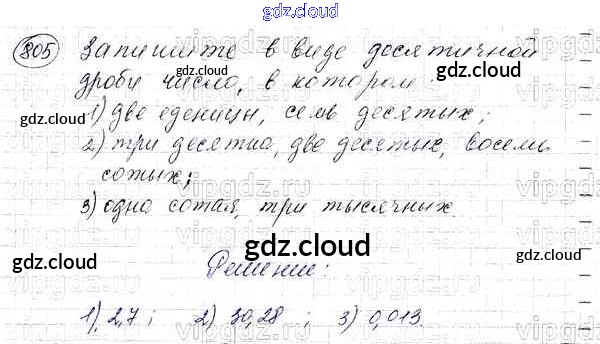 gdz.cloud
805 Запишите в виде десятичной
gdz.cloud
дроби число, в котором
1) две еденицы, семь десятых;
2) три десятка, две десятых, восемь
сотых;
gdz.cloud
3) одна сотая, три тысячных.
gdz.cloud
Решение:
gdz.cloud
1) 2,7; 2) 30,28; 3) 0,013.